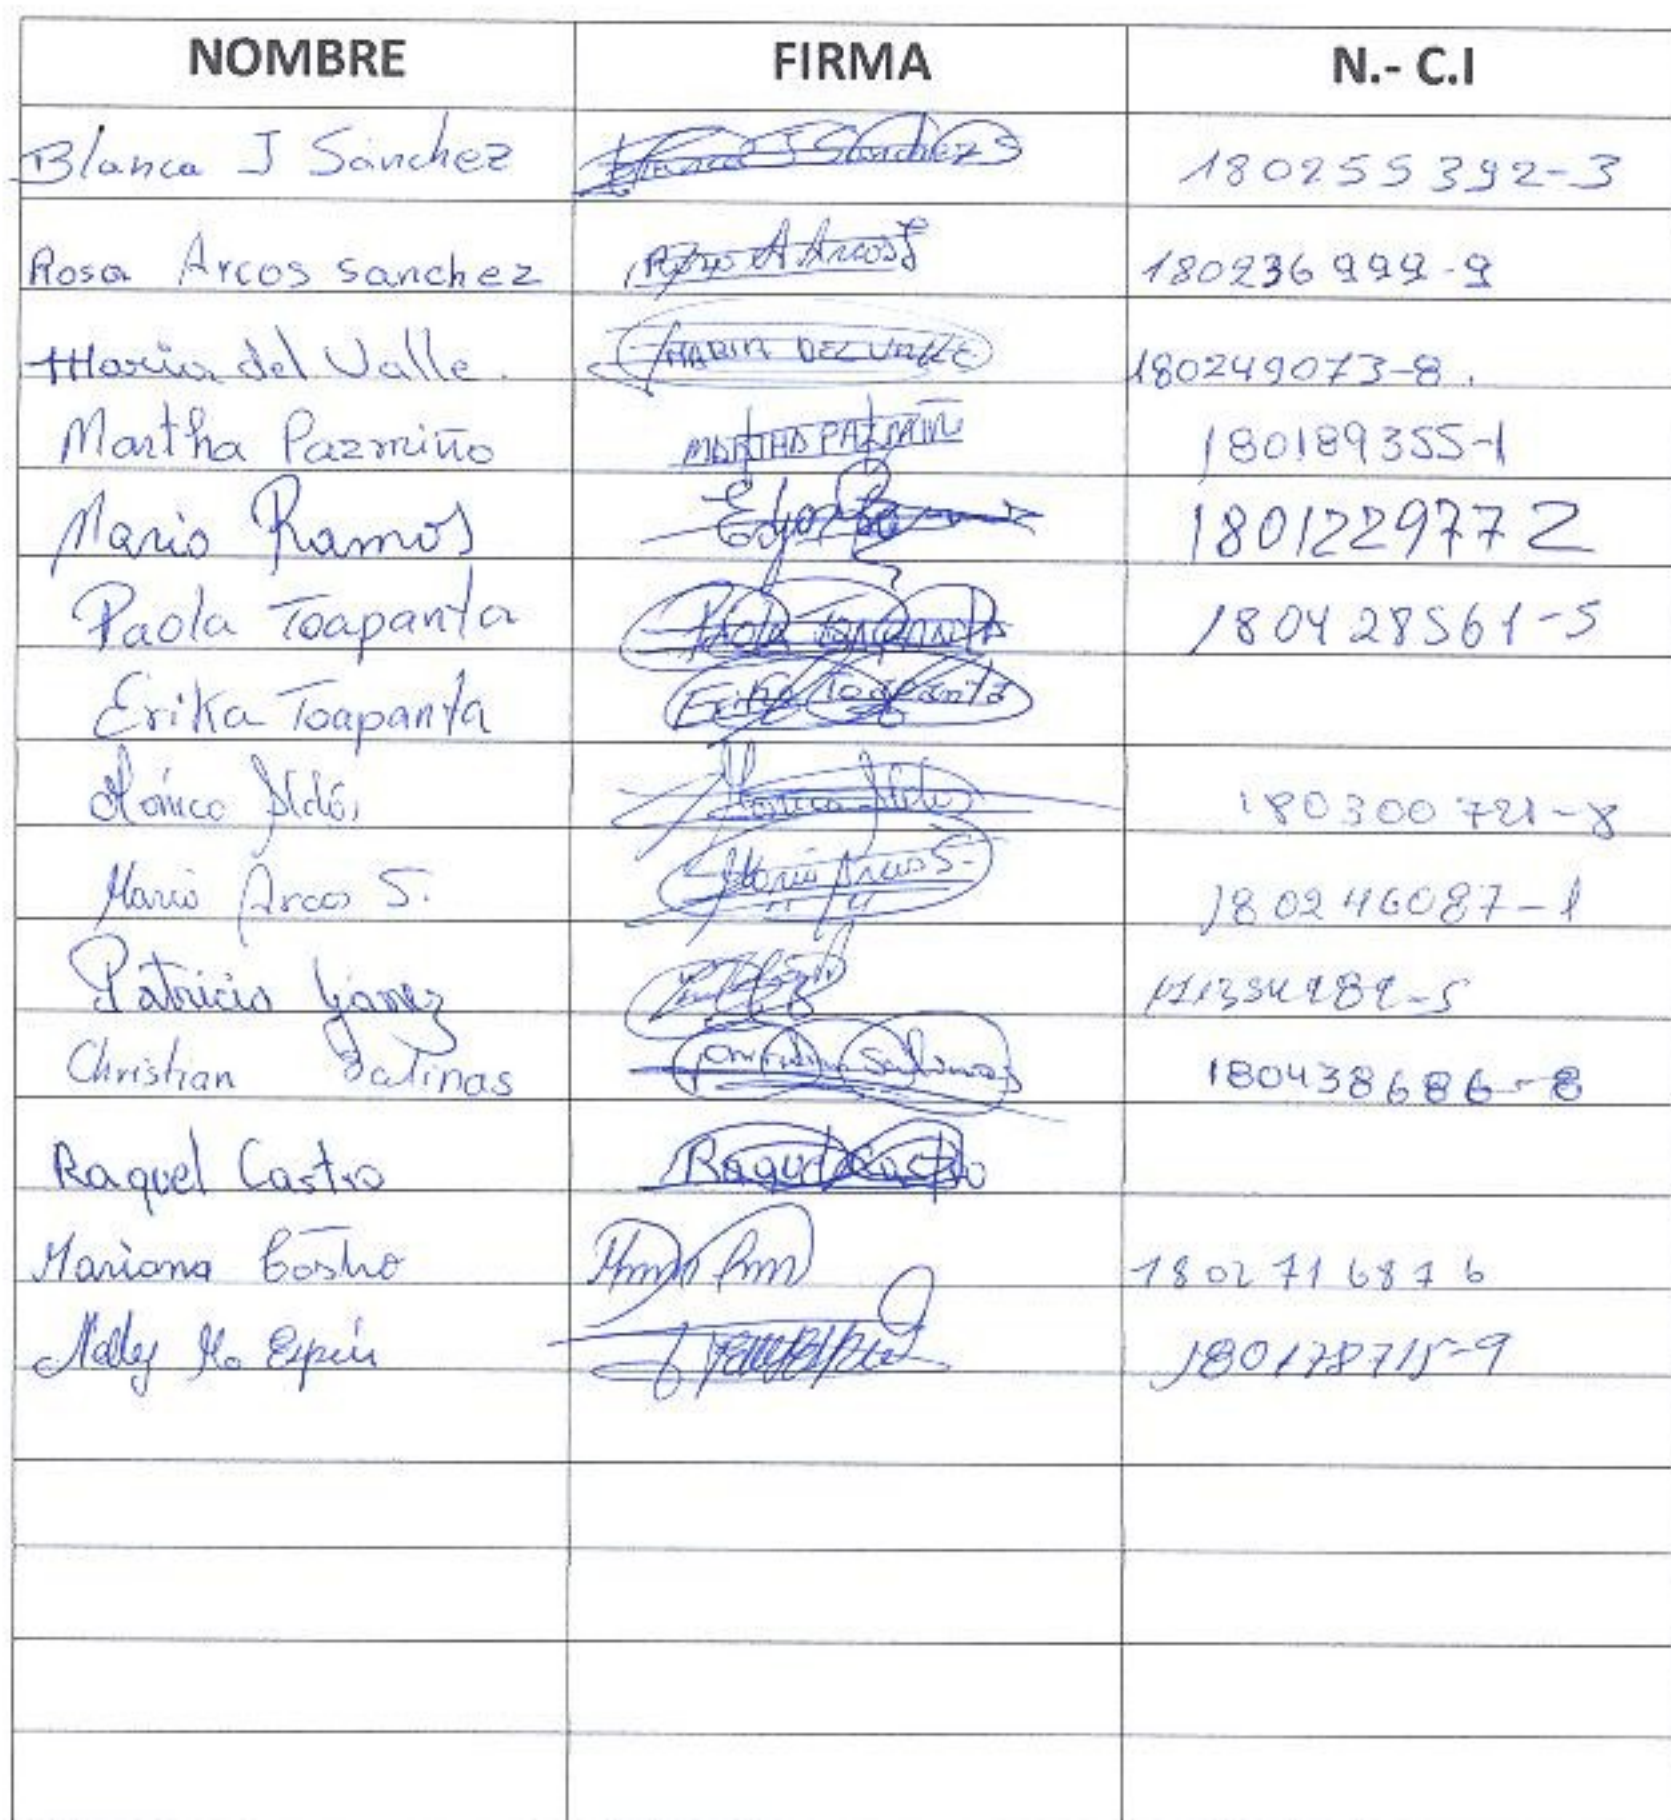 NOMBRE FIRMA N.- C.I
Blanca J Sánchez Blanca J Sanchez S 180255392-3
Rosa Arcos Sanchez Rosa A Arcos S 180236999-9
Maria del Valle. MARIA DEL VALLE 180249073-8.
Martha Pazmiño MARTHA PAZMIÑO 180189355-1
Mario Ramos 1801229772
Paola Toapanta PAOLA TOAPANTA 180428561-5
Erika Toapanta Erika Toapanta
Mónica Monica 180300721-8
Maria Arcos S. Maria Arcos S. 180246087-1
Patricio
Christian Salinas Christian Salinas 180438686-8
Raquel Castro Raquel Castro
Mariana Castro 1802716876
Nelly Ma Espín 180178715-9